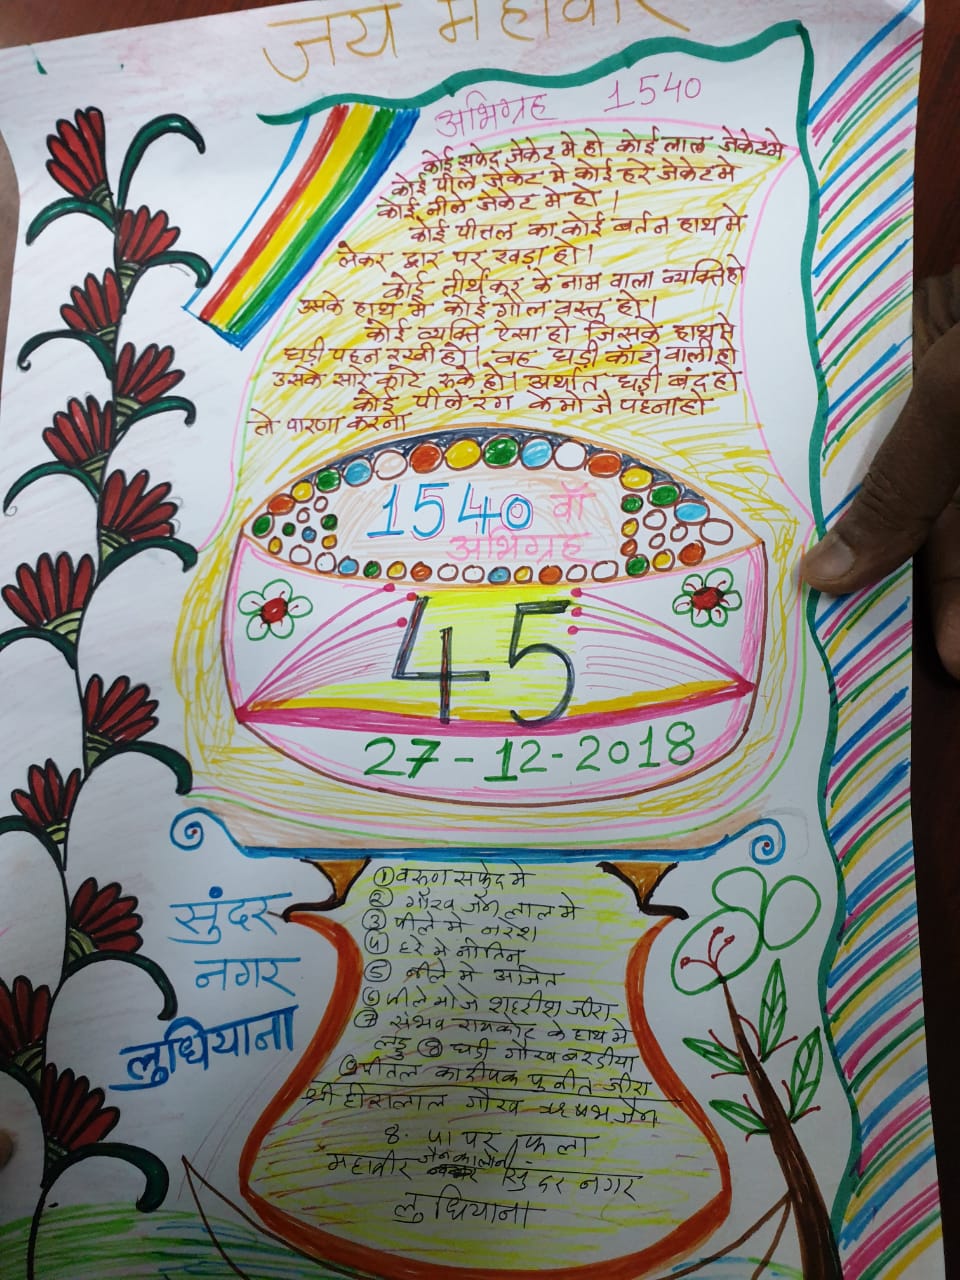 जय महावीर
अभिग्रह 1540
कोई सफेद जेकेट मे हो कोई लाल जेकेटमे
कोई पीले जेकेट मे कोई हरे जेकेट मे
कोई नीले जेकेट मे हो।
कोई पीतल का कोई बर्तन हाथ मे
लेकर द्वार पर खड़ा हो।
कोई तीर्थंकर के नाम वाला व्यक्ति हो
उसके हाथ मे कोई गोल वस्तु हो।
कोई व्यक्ति ऐसा हो जिसके हाथ मे
घड़ी पहन रखी हो। वह घड़ी काँटो वाली हो
उसके सारे कांटे रुके हो। अर्थात घड़ी बंद हो
कोई पीले रंग के मोजे पहना हो
तो पारणा करना
1540 वाँ
अभिग्रह
45
27-12-2018
सुंदर
नगर
लुधियाना
① वरुण सफेद मे
② गौरव जैन लाल मे
③ पीले मे नरेश
४ हरे मे नीतिन
⑤ नीले मे अजित
⑥ पीले मोजे जीरा
⑦ संभव रायकोट के हाथ मे
लड्डु ⑧ घड़ी गौरव बरडीया
पीतल का दीपक पूनीत जीरा
श्री हीरालाल गौरव ऋषभ जैन
8. पा पर फला
महावीर जैन कालोनी सुंदर नगर
लुधियाना